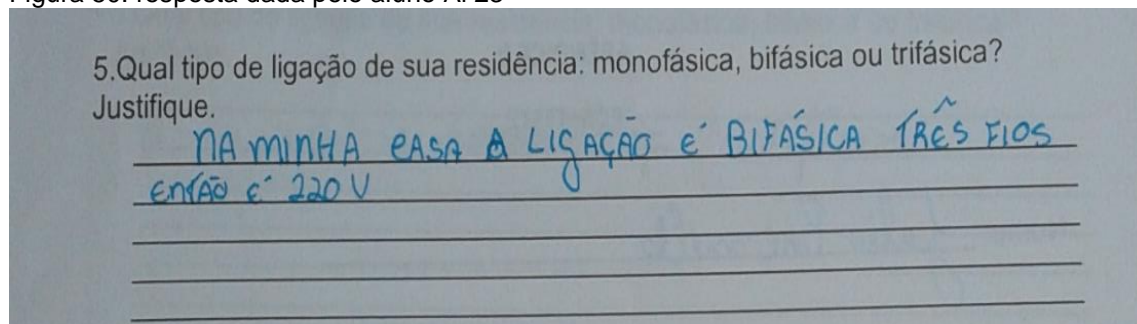 5.Qual tipo de ligação de sua residência: monofásica, bifásica ou trifásica?
Justifique.
NA MINHA CASA A LIGAÇÃO É BIFÁSICA TRÊS FIOS
ENTÃO É 220 V